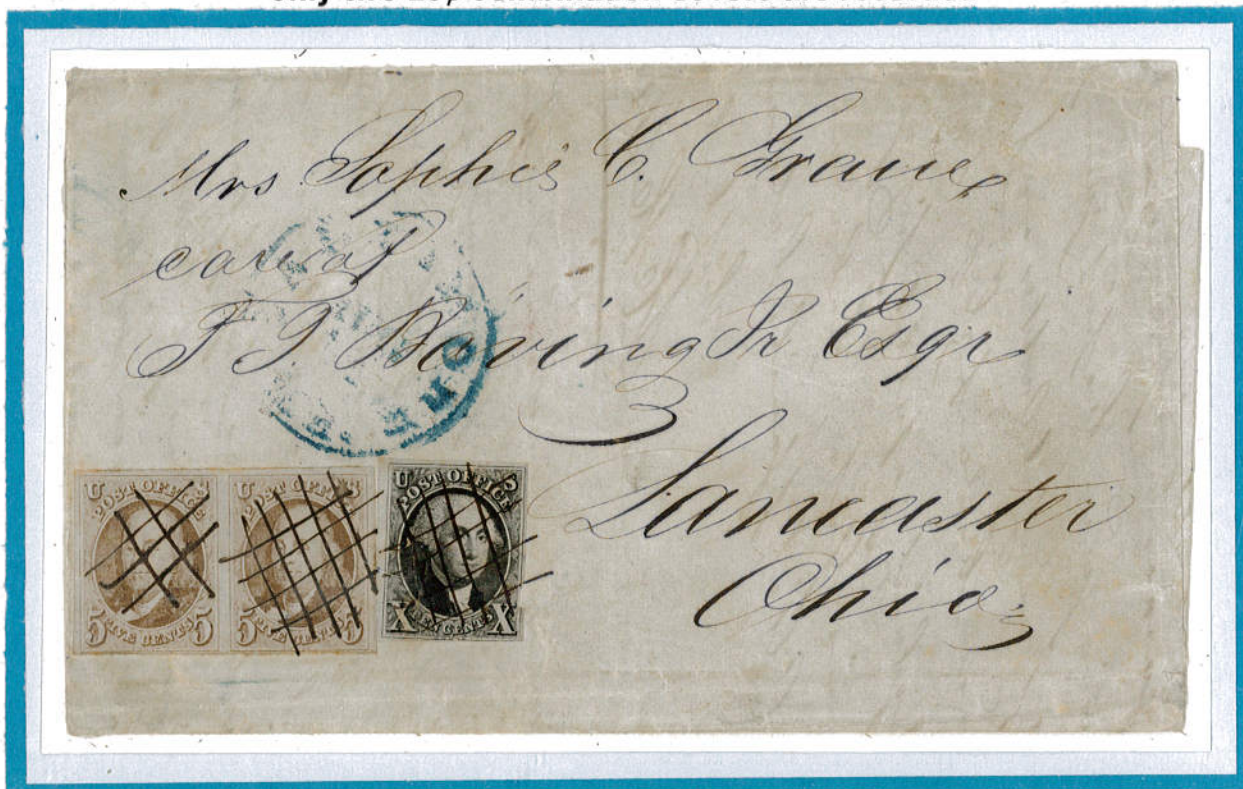 Mrs Sophie C. Graue
care of
F J Böving Jr Esqr
Lancaster
Ohio
U S
POST OFFICE
5 FIVE CENTS 5
U S
POST OFFICE
5 FIVE CENTS 5
U S
POST OFFICE
X TEN CENTS X